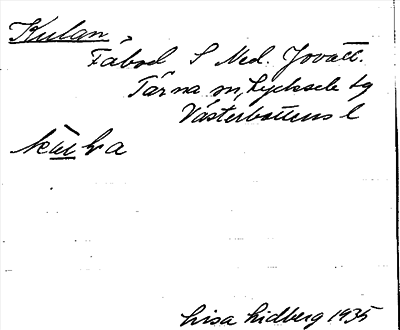 Kulan,
Fäbod S Ned. Jovatt.
Tärna sn, Lycksele tg
Västerbottens l
Lisa Lidberg 1935